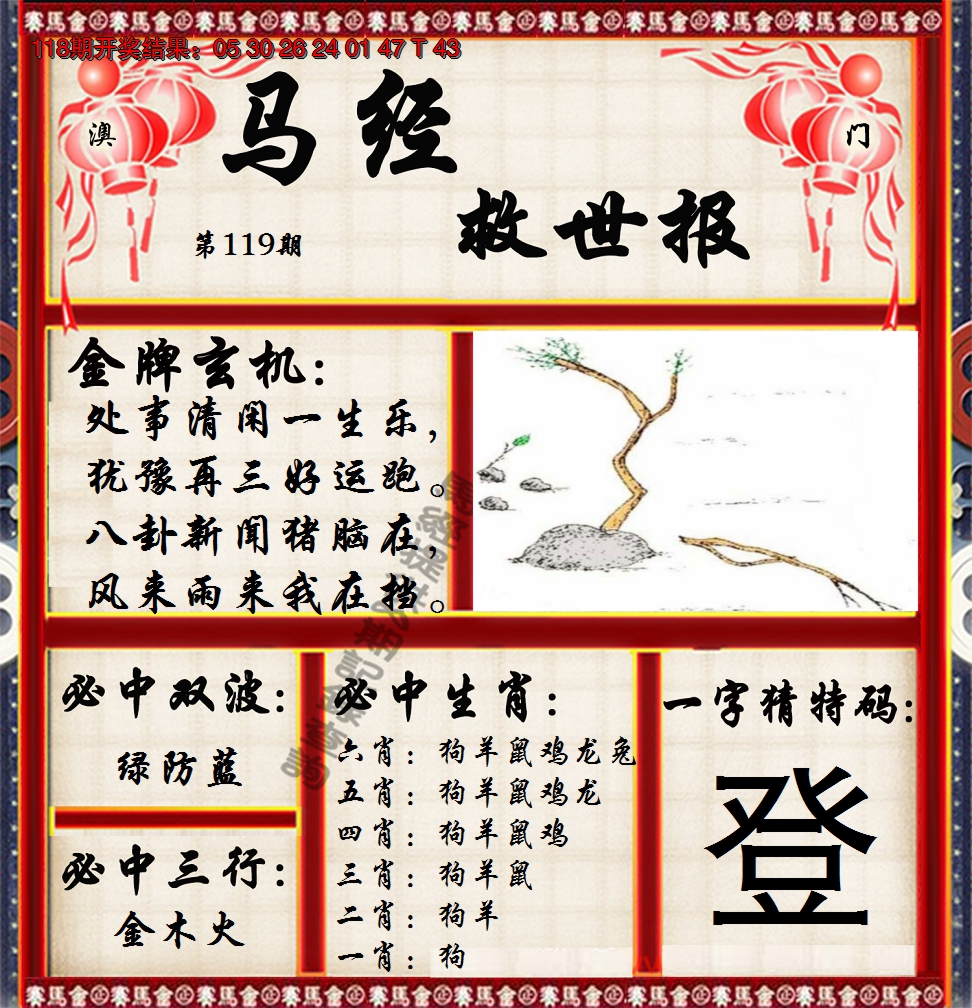 118期开奖结果：05 30 26 24 01 47 T 43
澳 门
马经
救世报
第119期
金牌玄机：
处事清闲一生乐，
犹豫再三好运跑。
八卦新闻猪脑在，
风来雨来我在挡。
必中双波：
绿防蓝
必中三行：
金木火
必中生肖：
六肖：狗羊鼠鸡龙兔
五肖：狗羊鼠鸡龙
四肖：狗羊鼠鸡
三肖：狗羊鼠
二肖：狗羊
一肖：狗
一字猜特码：
登